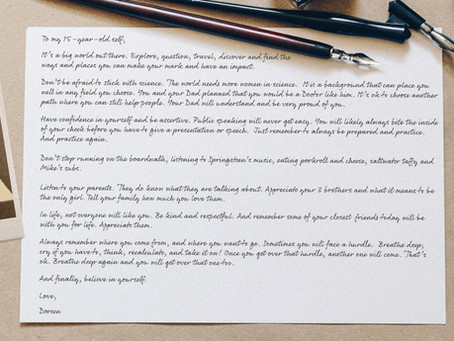 To my 15-year-old self,
It's a big world out there. Explore, question, travel, discover and find the
ways and places you can make your mark and have an impact.
Don't be afraid to stick with science. The world needs more women in science. It is a background that can place you
well in any field you choose. You and your Dad planned that you would be a Doctor like him. It's ok to choose another
path where you can still help people. Your Dad will understand and be very proud of you.
Have confidence in yourself and be assertive. Public speaking will never get easy. You will likely always bite the inside
of your cheek before you have to give a presentation or speech. Just remember to always be prepared and practice.
And practice again.
Don't stop running on the boardwalk, listening to Springsteen's music, eating porkroll and cheese, saltwater taffy and
Mike's subs.
Listen to your parents. They do know what they are talking about. Appreciate your 3 brothers and what it means to be
the only girl. Tell your family how much you love them.
In life, not everyone will like you. Be kind and respectful. And remember some of your closest friends today will be
with you for life. Appreciate them.
Always remember where you come from, and where you want to go. Sometimes you will face a hurdle. Breathe deep,
cry if you have to, think, recalculate, and take it on! Once you get over that hurdle, another one will come. That's
ok. Breathe deep again and you will get over that one too.
And finally, believe in yourself.
Love,
Doreen